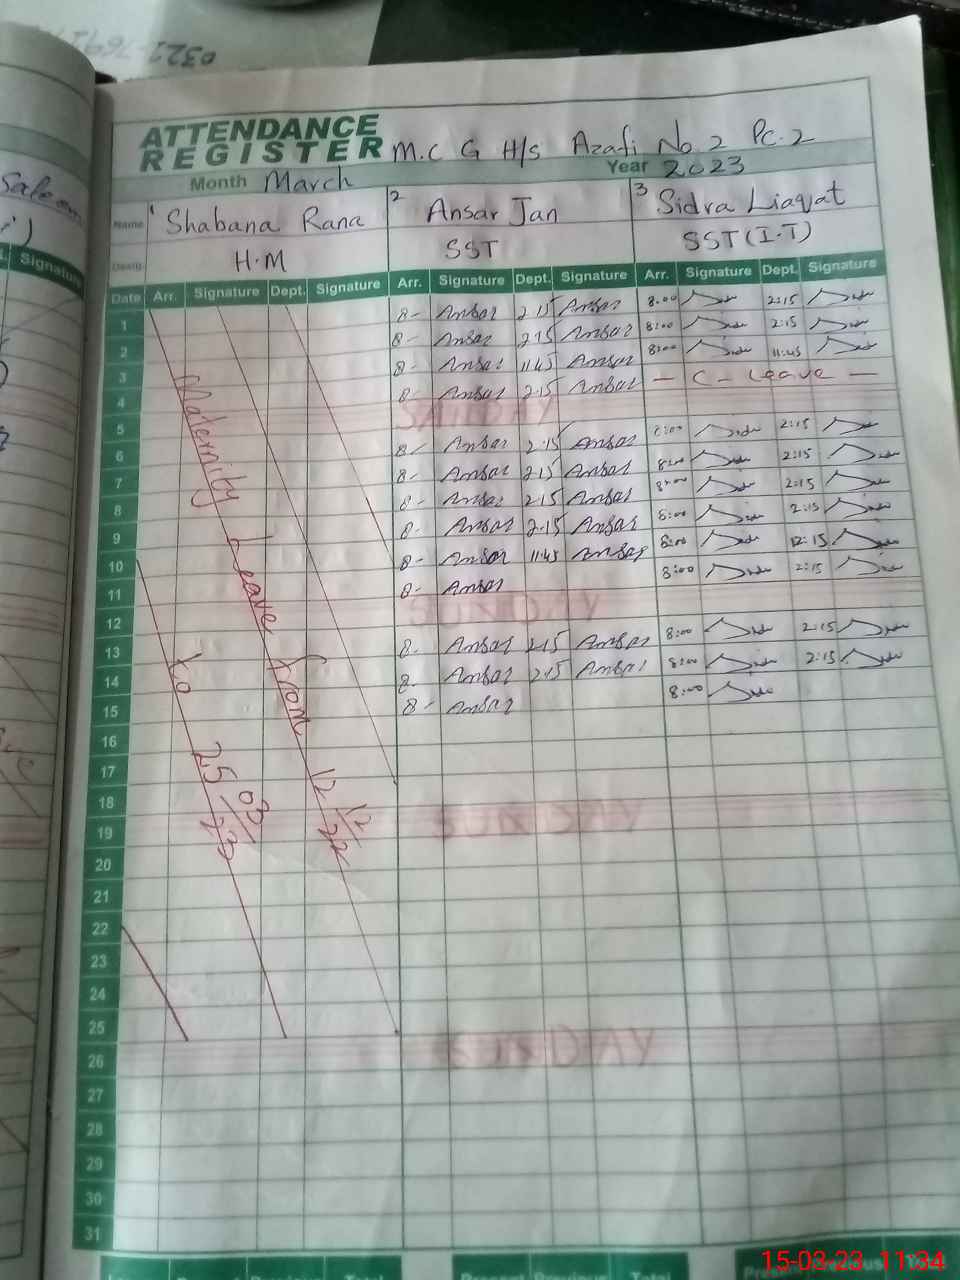 ATTENDANCE
REGISTER M.C G H/S Azafi No 2 Pc.2
Month March Year 2023
Name 1 Shabana Rana 2 Ansar Jan 3 Sidra Liaqat
Desig. H.M SST SST (I.T)
Date Arr. Signature Dept. Signature Arr. Signature Dept. Signature Arr. Signature Dept. Signature
1 8- Ansar 2 15 Ansar 8:00 2:15
2 8- Ansar 2:15 Ansar 8:00 2:15
3 8- Ansar 11:45 Ansar 8:00 11:45
4 8- Ansar 2:15 Ansar — C - Leave —
5 SUNDAY
6 8- Ansar 2:15 Ansar 8:00 2:15
7 8- Ansar 2:15 Ansar 8:00 2:15
8 8- Ansar 2:15 Ansar 8:00 2:15
9 8- Ansar 2:15 Ansar 8:00 2:15
10 8- Ansar 11:45 Ansar 8:00 12:15
11 8- Ansar 8:00 2:15
12 SUNDAY
13 8- Ansar 2:15 Ansar 8:00 2:15
14 8- Ansar 2:15 Ansar 8:00 2:15
15 8- Ansar 8:00
16
17
18
19 SUNDAY
20
21
22
23
24
25
26 SUNDAY
27
28
29
30
31
Maternity Leave from 12/12/22
to 25/03/23
Signature
Total
15-03-23 11:34